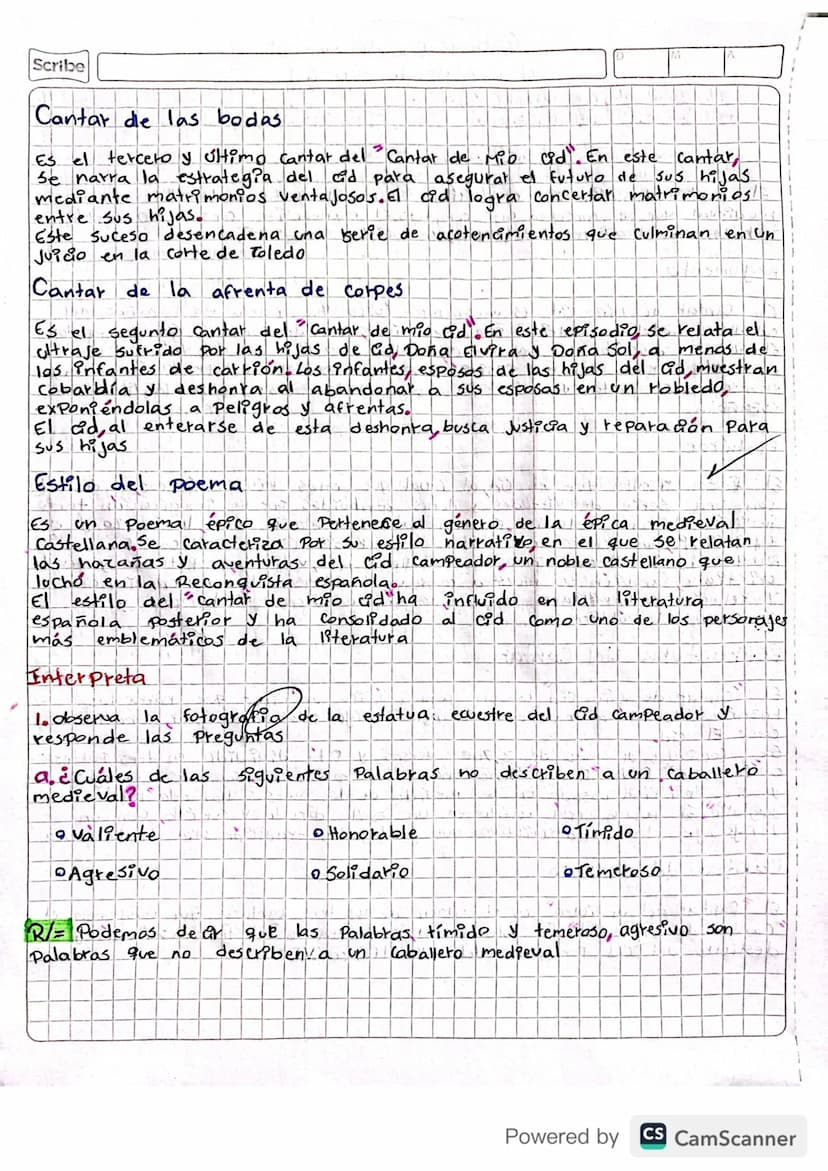 Scribe
D M A
Cantar de las bodas
Es el tercero y último cantar del "Cantar de Mio Cid". En este cantar,
se narra la estrategia del cid para asegurar el futuro de sus hijas
mediante matrimonios ventajosos. El cid logra concertar matrimonios
entre sus hijas.
Este suceso desencadena una serie de acotencimientos que culminan en un
juicio en la corte de Toledo
Cantar de la afrenta de corpes
Es el segunto cantar del "cantar de mio cid". En este episodio se relata el
ultraje sufrido por las hijas de Cid, Doña Elvira y Doña Sol, a menos de
los infantes de carrión. Los infantes, esposos de las hijas del cid, muestran
cobardía y deshonra al abandonar a sus esposas en un robledo,
exponiéndolas a peligros y afrentas.
El cid, al enterarse de esta deshonra, busca justicia y reparación para
sus hijas
Estilo del poema
Es un poema épico que pertenese al género de la épica medieval
castellana. Se caracteriza por su estilo narrativo, en el que se relatan
las hazañas y aventuras del cid campeador, un noble castellano que
luchó en la Reconquista española.
El estilo del "cantar de mio cid" ha influido en la literatura
española posterior y ha consolidado al cid como uno de los personajes
más emblemáticos de la literatura
Interpreta
1. observa la fotografía de la estatua ecuestre del cid campeador y
responde las preguntas
a. ¿Cuáles de las siguientes palabras no describen a un caballero
medieval?
• valiente • Honorable • Tímido
• Agresivo • Solidario • Temeroso
R/= Podemos decir que las palabras tímido y temeroso, agresivo son
palabras que no describen a un caballero medieval
Powered by CS CamScanner